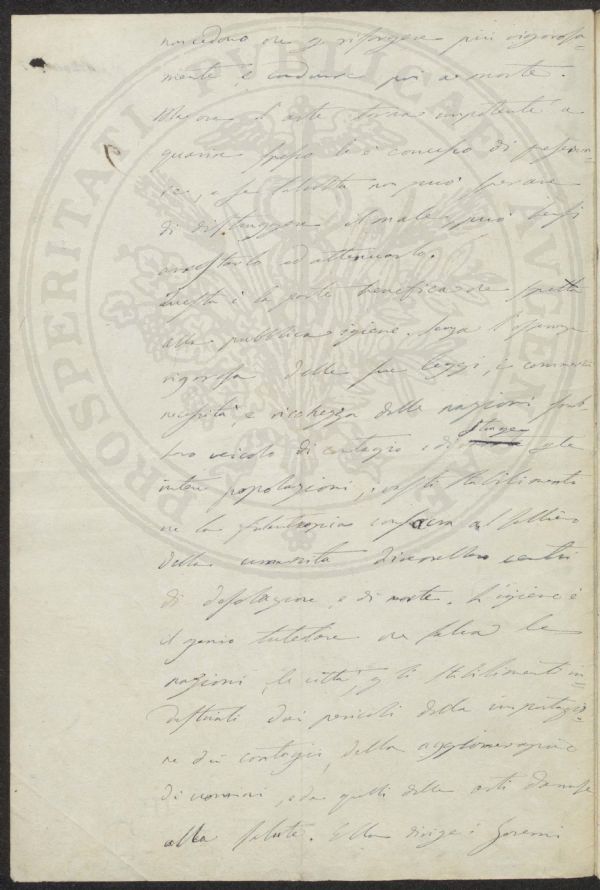 nascedono che p. risorgere più vigorosa=
mente, e condurre poi a morte.
Ma ove l'arte torna impotente a
guarire spesso le è concesso di preserva=
re, e se talvolta non può sperare
di distruggere il male, può bensì
arrestarlo ed attenuarlo.
Questa è la parte benefica che spetta
alla pubblica igiene. Senza l'osservanza
rigorosa delle sue leggi, i commerci
necessità, e ricchezza delle nazioni, sareb=
bero veicolo di contagio, e di strage alle
intere popolazioni, i vasti stabilimenti
che la filantropia consacra al sollievo
della umanità diverrebbero centri
di desolazione, e di morte. L'igiene è
il genio tutelare che salva le
nazioni, le città, e gli stabilimenti in=
dustriali dai pericoli della importazio=
ne dei contagi, della agglomerazione
di uomini, e da quelli delle arti dannose
alla salute. Ella dirige i Governi
PROSPERITATI PUBLICAE AUGENDAE